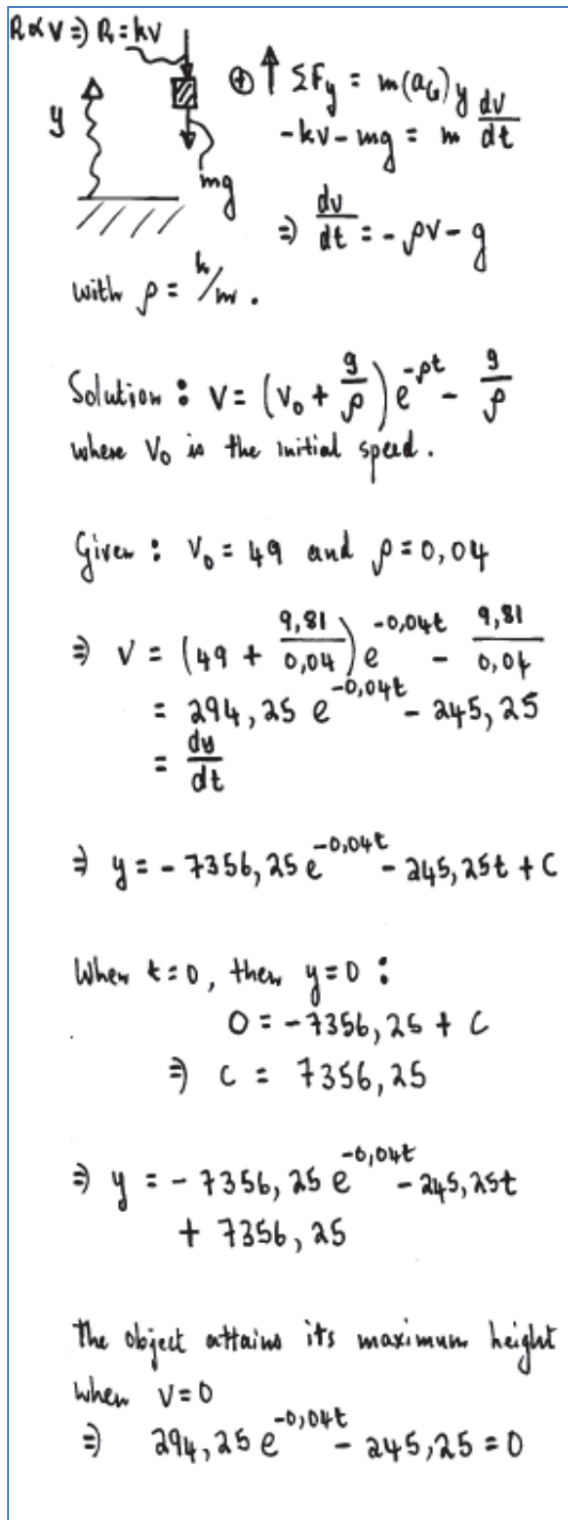 R ∝ V ⇒ R = kv
⊕ ↑ ΣFy = m(aG)y
y
-kv - mg = m dv/dt
mg
⇒ dv/dt = -ρv - g
with ρ = k/m.
Solution : V = (V₀ + g/ρ) e^(-ρt) - g/ρ
where V₀ is the initial speed.
Given : V₀ = 49 and ρ = 0,04
⇒ V = (49 + 9,81/0,04) e^(-0,04t) - 9,81/0,04
= 294,25 e^(-0,04t) - 245,25
= dy/dt
⇒ y = - 7356,25 e^(-0,04t) - 245,25t + C
When t=0, then y=0 :
0 = -7356,25 + C
⇒ C = 7356,25
⇒ y = - 7356,25 e^(-0,04t) - 245,25t
+ 7356,25
The object attains its maximum height
when V=0
⇒ 294,25 e^(-0,04t) - 245,25 = 0